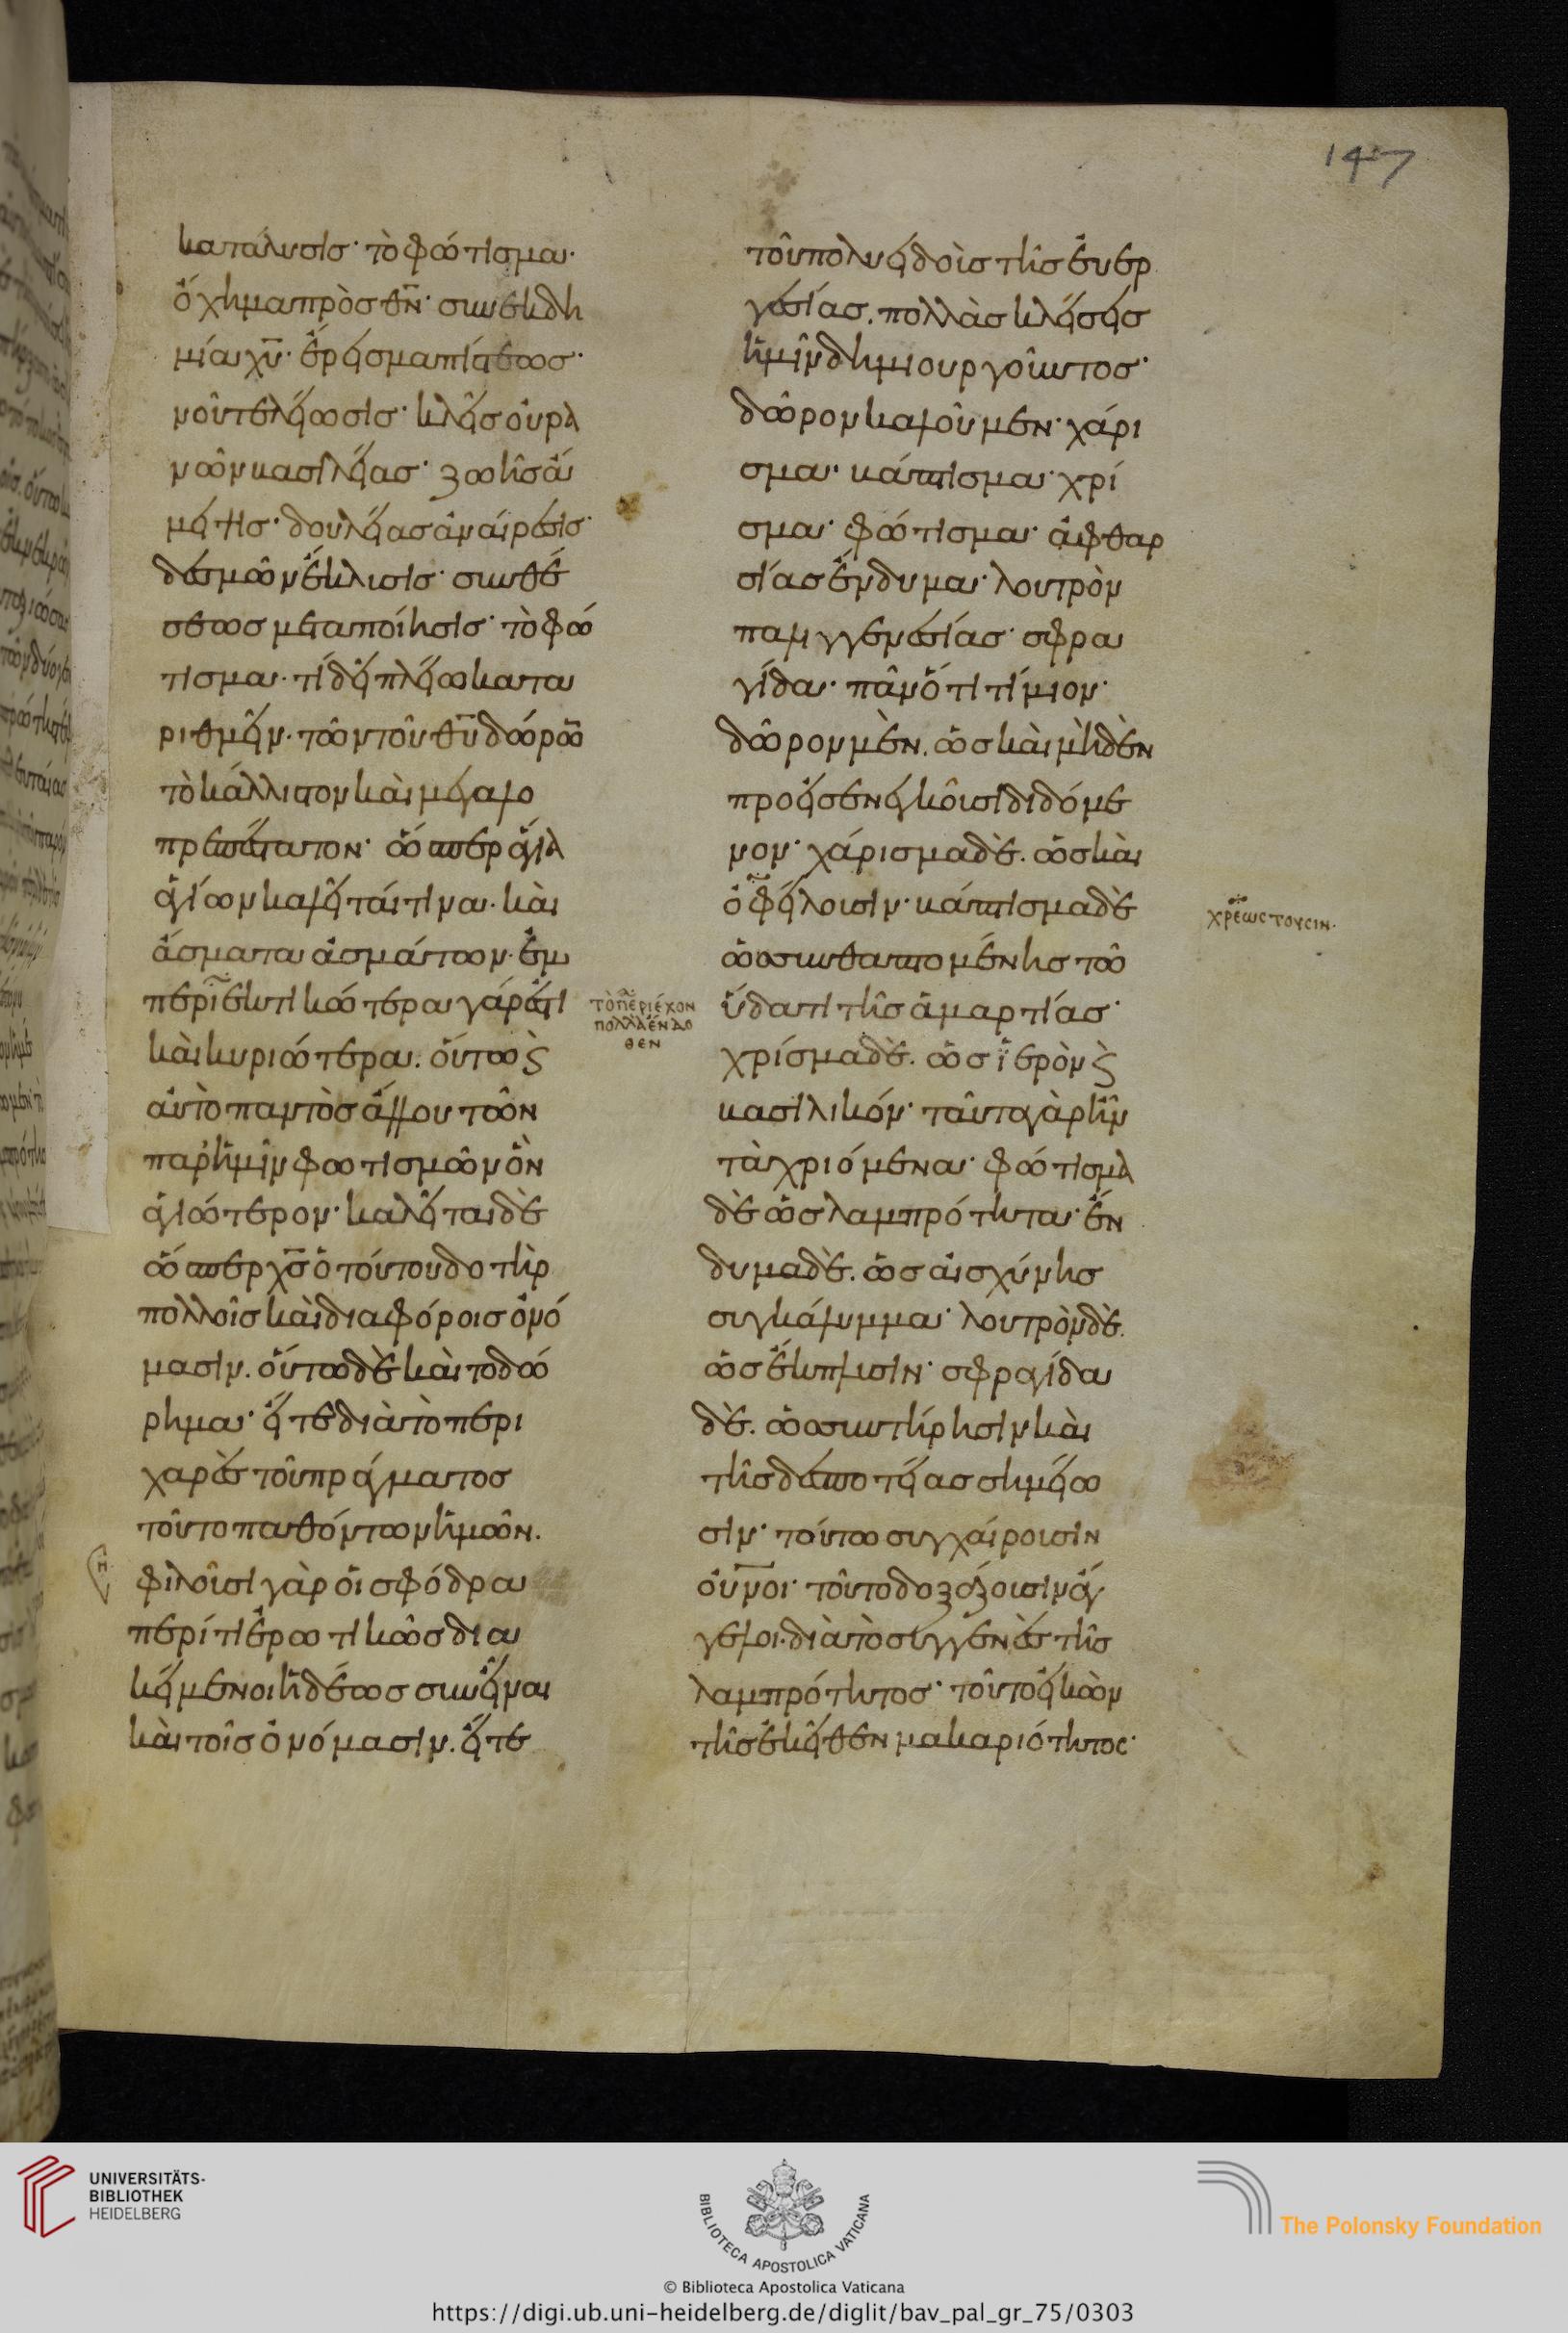 147
κατάλυσις· τὸ φώτισμα·
ὄχημα πρὸς θν̄· συνεκδη
μία χῡ· ἔρεισμα πίστεως·
νοῦ τελείωσις· κλεῖς οὐρα
νῶν βασιλείας· ζωῆς ἄ
μειψις· δουλείας ἀναίρεσις·
δεσμῶν ἔκλυσις· συνθέ
σεως μεταποίησις· τὸ φώ
τισμα· τί δεῖ πλείω κατα
ριθμεῖν· τῶν τοῦ θῡ δώρω̄
τὸ κάλλιστον καὶ μεγαλο
πρεπέστατον· ὥσπερ ἅγια
ἁγίων καλεῖταί τινα· καὶ
ἄσματα ἀσμάτων· ἐμ
περιεκτικώτερα γάρ ἐστι
καὶ κυριώτερα. οὕτως
αὐτὸ παντὸς ἄλλου τῶν
παρ' ἡμῖν φωτισμῶν ὂν
ἁγιώτερον· καλεῖται δὲ
ὥσπερ χς̄ ὁ τούτου δοτὴρ
πολλοῖς καὶ διαφόροις ὀνό
μασιν. οὕτω δὲ καὶ τὸ δώ
ρημα· εἴτε διὰ τὸ περι
χαρὲς τοῦ πράγματος
τοῦτο παθόντων ἡμῶν.
φιλοῦσι γὰρ οἱ σφόδρα
περί τι ἐρωτικῶς δια
κείμενοι ἡδέως συνεῖναι
καὶ τοῖς ὀνόμασιν. εἴτε
τὸ περιέχον
πολλὰ ἔνδο
θεν
τοῦ πολυειδοῦς τῆς εὐερ
γεσίας. πολλὰς κλήσεις
ἡμῖν δημιουργοῦντος·
δῶρον καλοῦμεν· χάρι
σμα· βάπτισμα· χρί
σμα· φώτισμα· ἀφθαρ
σίας ἔνδυμα· λουτρὸν
παλιγγενεσίας· σφρα
γίδα· πᾶν ὅτι τίμιον·
δῶρον μὲν. ὡς καὶ μηδὲν
προεισενεγκοῦσι διδόμε
νον· χάρισμα δὲ. ὡς καὶ
ὀφείλουσιν· βάπτισμα δὲ
ὡς συνθαπτομένης τῶ
ὕδατι τῆς ἁμαρτίας·
χρίσμα δὲ. ὡς ἱερὸν ϗ
βασιλικόν· ταῦτα γὰρ ἦν
τὰ χριόμενα· φώτισμα
δὲ ὡς λαμπρότητα· ἔν
δυμα δὲ. ὡς αἰσχύνης
συγκάλυμμα· λουτρὸν δὲ.
ὡς ἔκπλυσιν· σφραγίδα
δὲ. ὡς συντήρησιν καὶ
τῆς δεσποτείας σημείω
σιν· τούτω συγχαίρουσιν
οὐνοι· τοῦτο δοξάζουσιν ἄγ
γελοι· διὰ τὸ συγγενὲς τῆς
λαμπρότητος· τοῦτο εἰκὼν
τῆς ἐκεῖθεν μακαριότητος·
χρεωστοῦσιν·
UNIVERSITÄTS-
BIBLIOTHEK
HEIDELBERG
BIBLIOTECA APOSTOLICA VATICANA
© Biblioteca Apostolica Vaticana
The Polonsky Foundation
https://digi.ub.uni-heidelberg.de/diglit/bav_pal_gr_75/0303